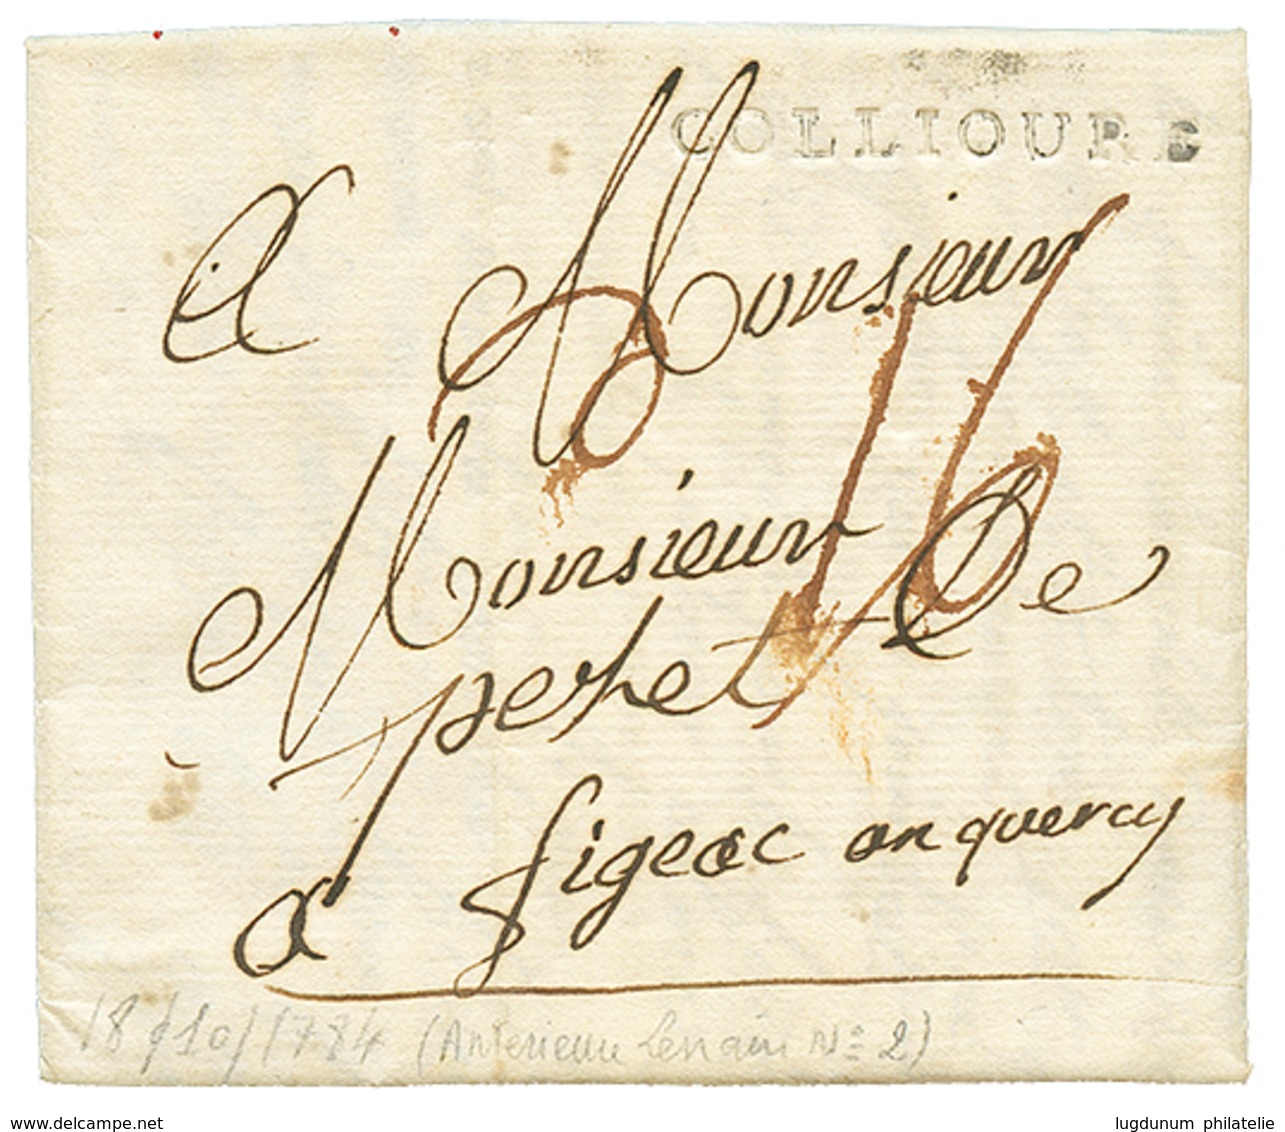 COLLIOURE
A Monsieur
16
Monsieur De
peret
a figeac en quercy
18/10/1784 (Anterieur Lenain N° 2)
www.delcampe.net
lugdunum philatelie